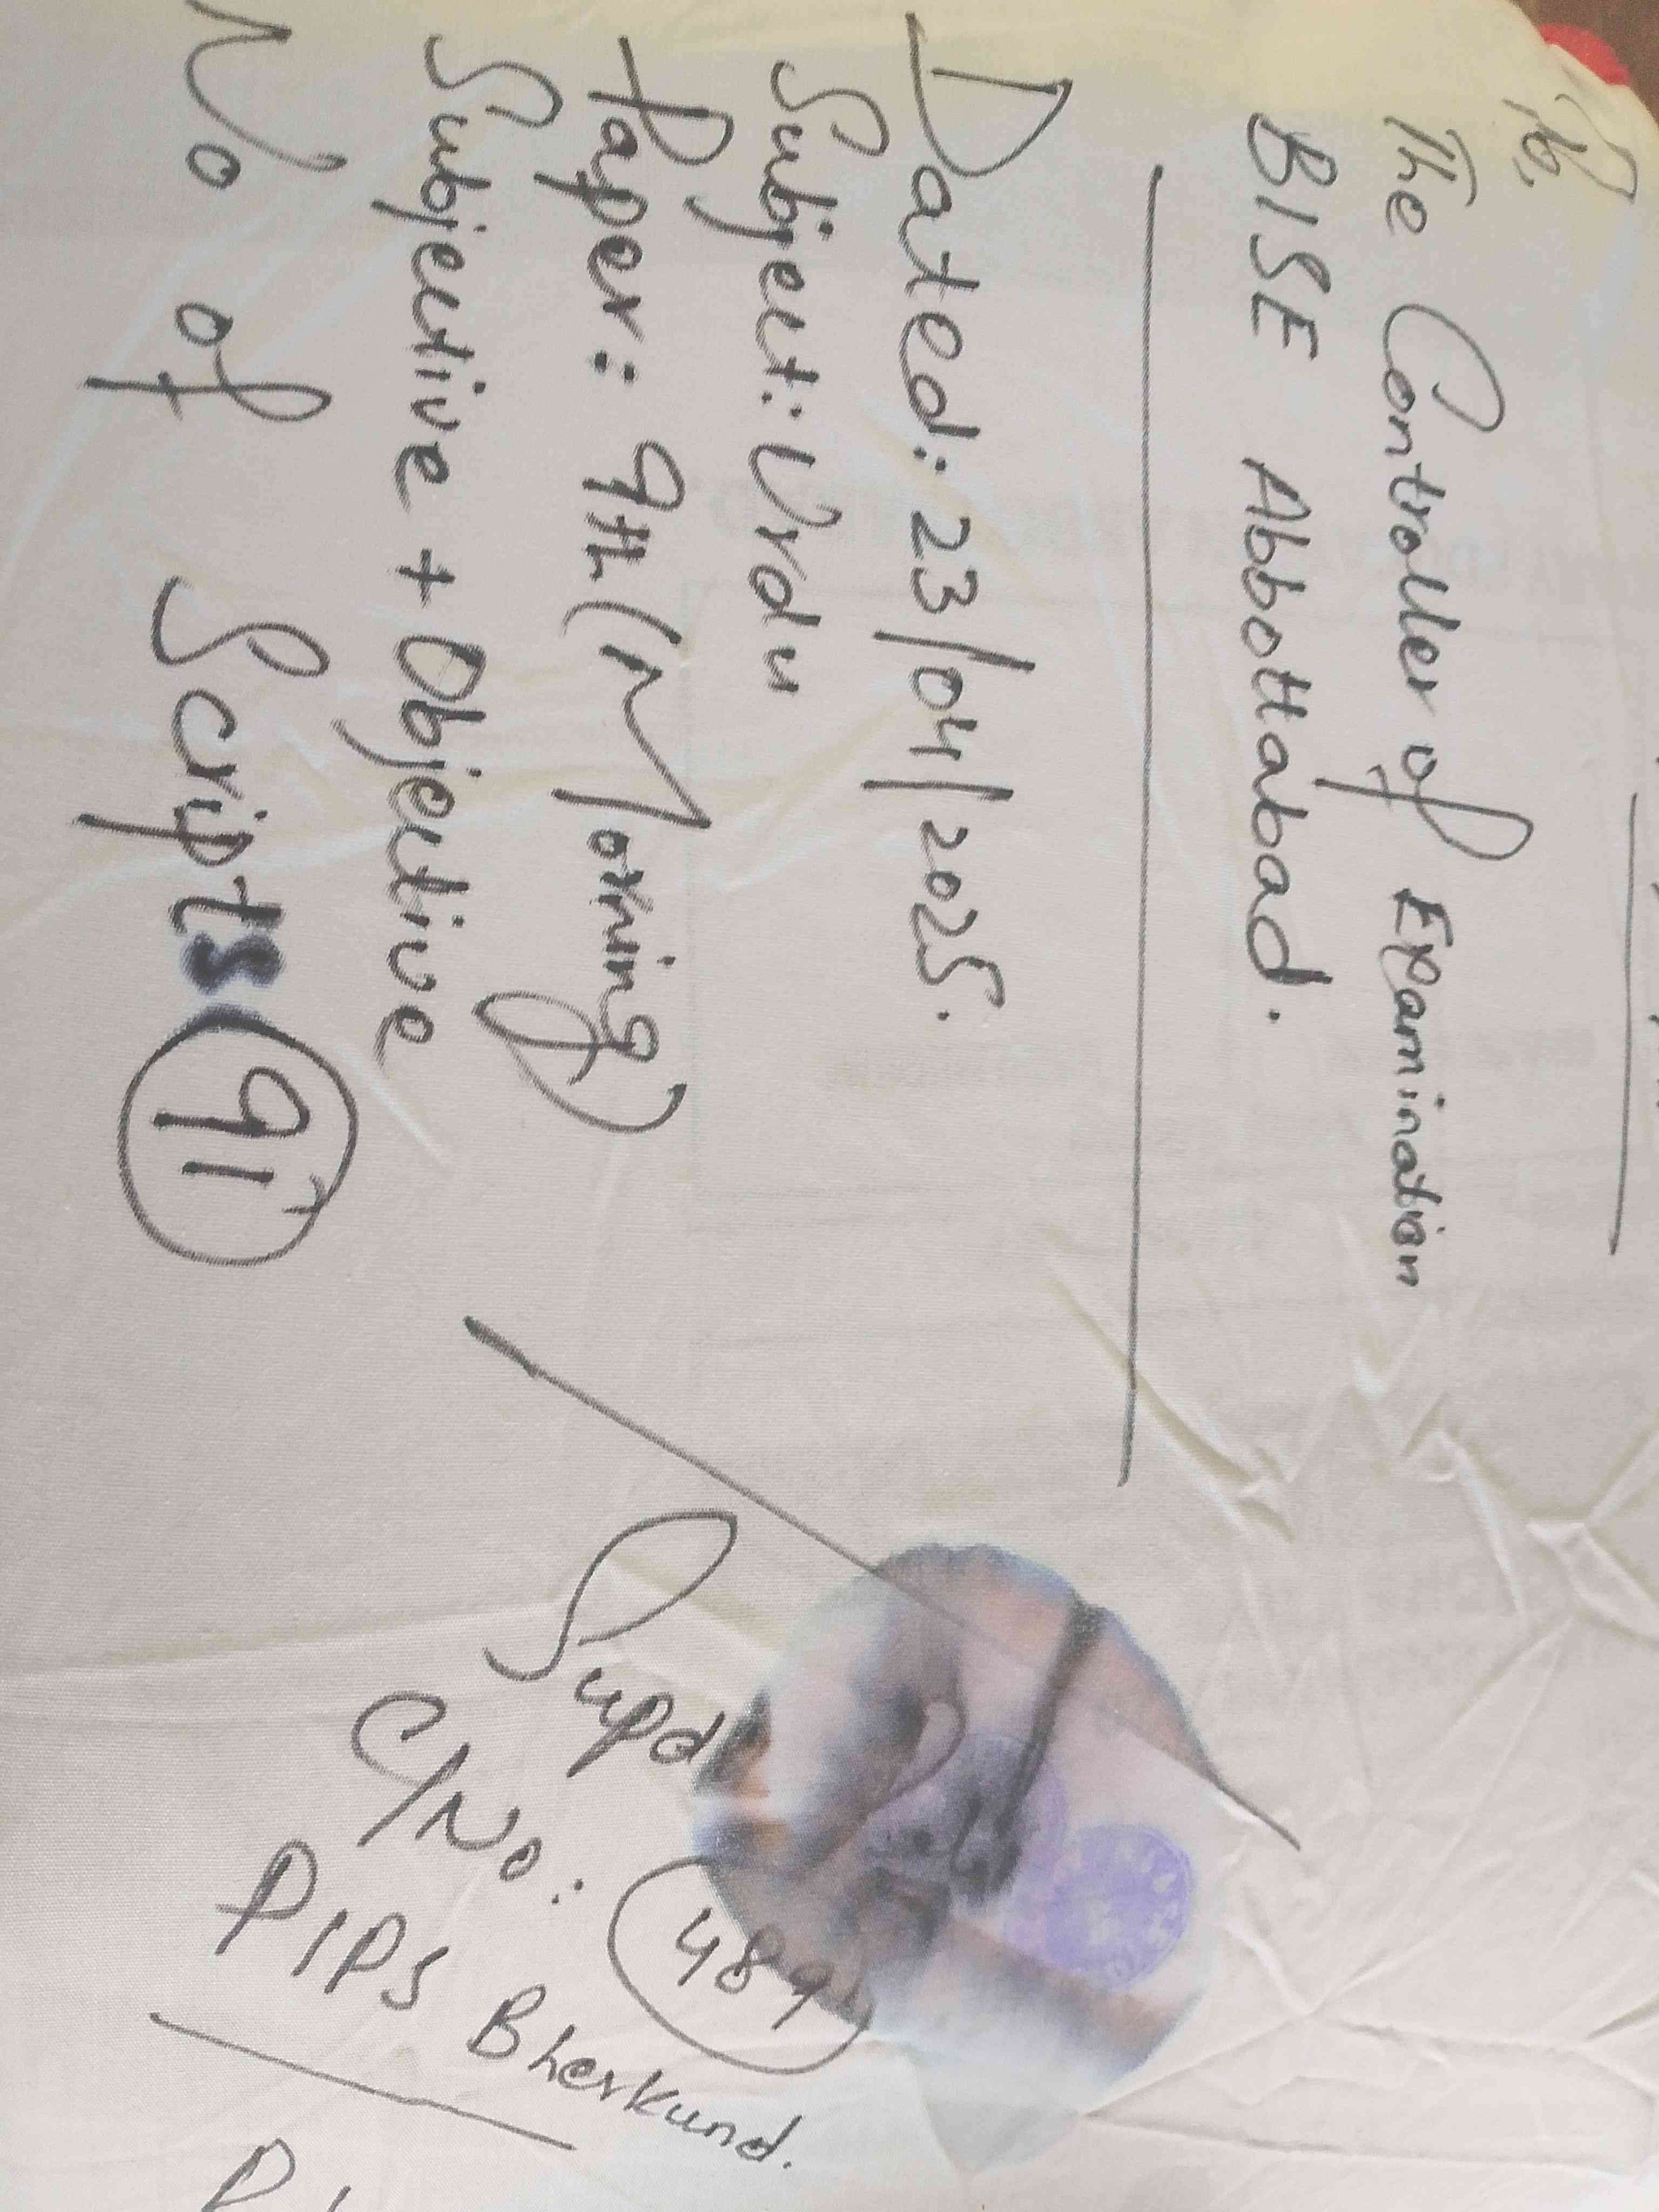 To,
The Controller of Examination
BISE Abbottabad.
Dated: 23/04/2025.
Subject: Urdu
Paper: 9th (Morning)
Subjective + Objective
No of Scripts (91)
Supdt
C/No: 489
PIPS Bherkund.